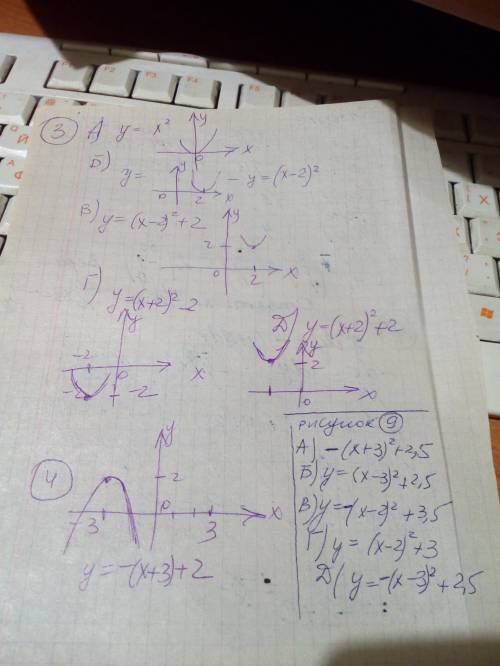 3 А) y = x² y
0 x
Б) y = y – y = (x-2)²
0 2 x
В) y = (x-2)² + 2 y
2
0 2 x
Г) y = (x+2)² - 2
y
-2 0 x
-2 -2
Д) y = (x+2)² + 2
y
2
0 x
4
y
2
0
-3 3 x
y = -(x+3) + 2
рисунок 9
А) -(x+3)² + 2,5
Б) y = (x-3)² + 2,5
В) y = -(x-2)² + 3,5
Г) y = (x-2)² + 3
Д) y = -(x-3)² + 2,5